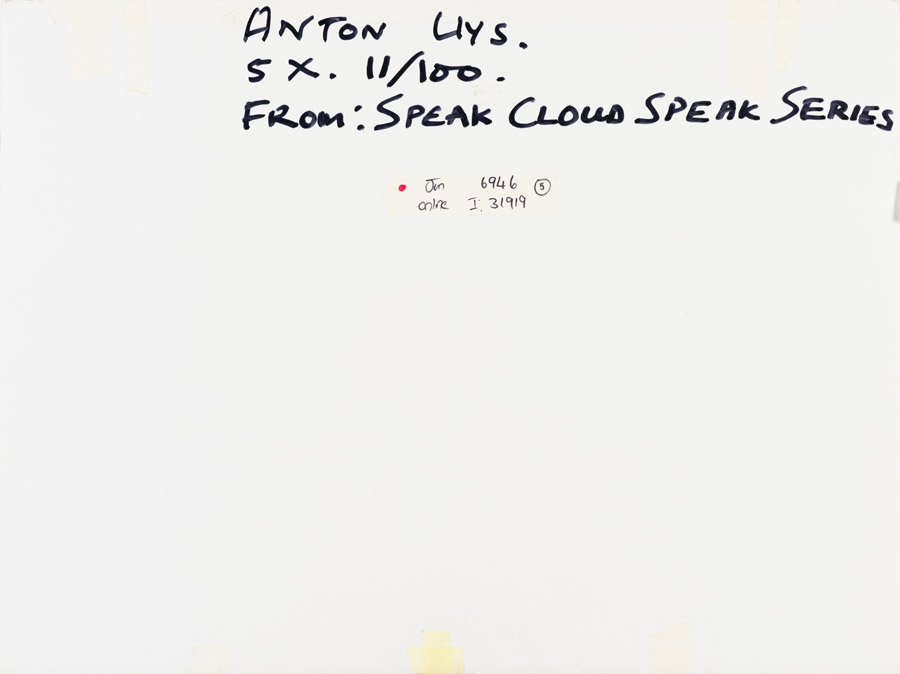 ANTON UYS.
5 X. 11/100.
FROM: SPEAK CLOUD SPEAK SERIES
Jon 6946 5
online I. 31919